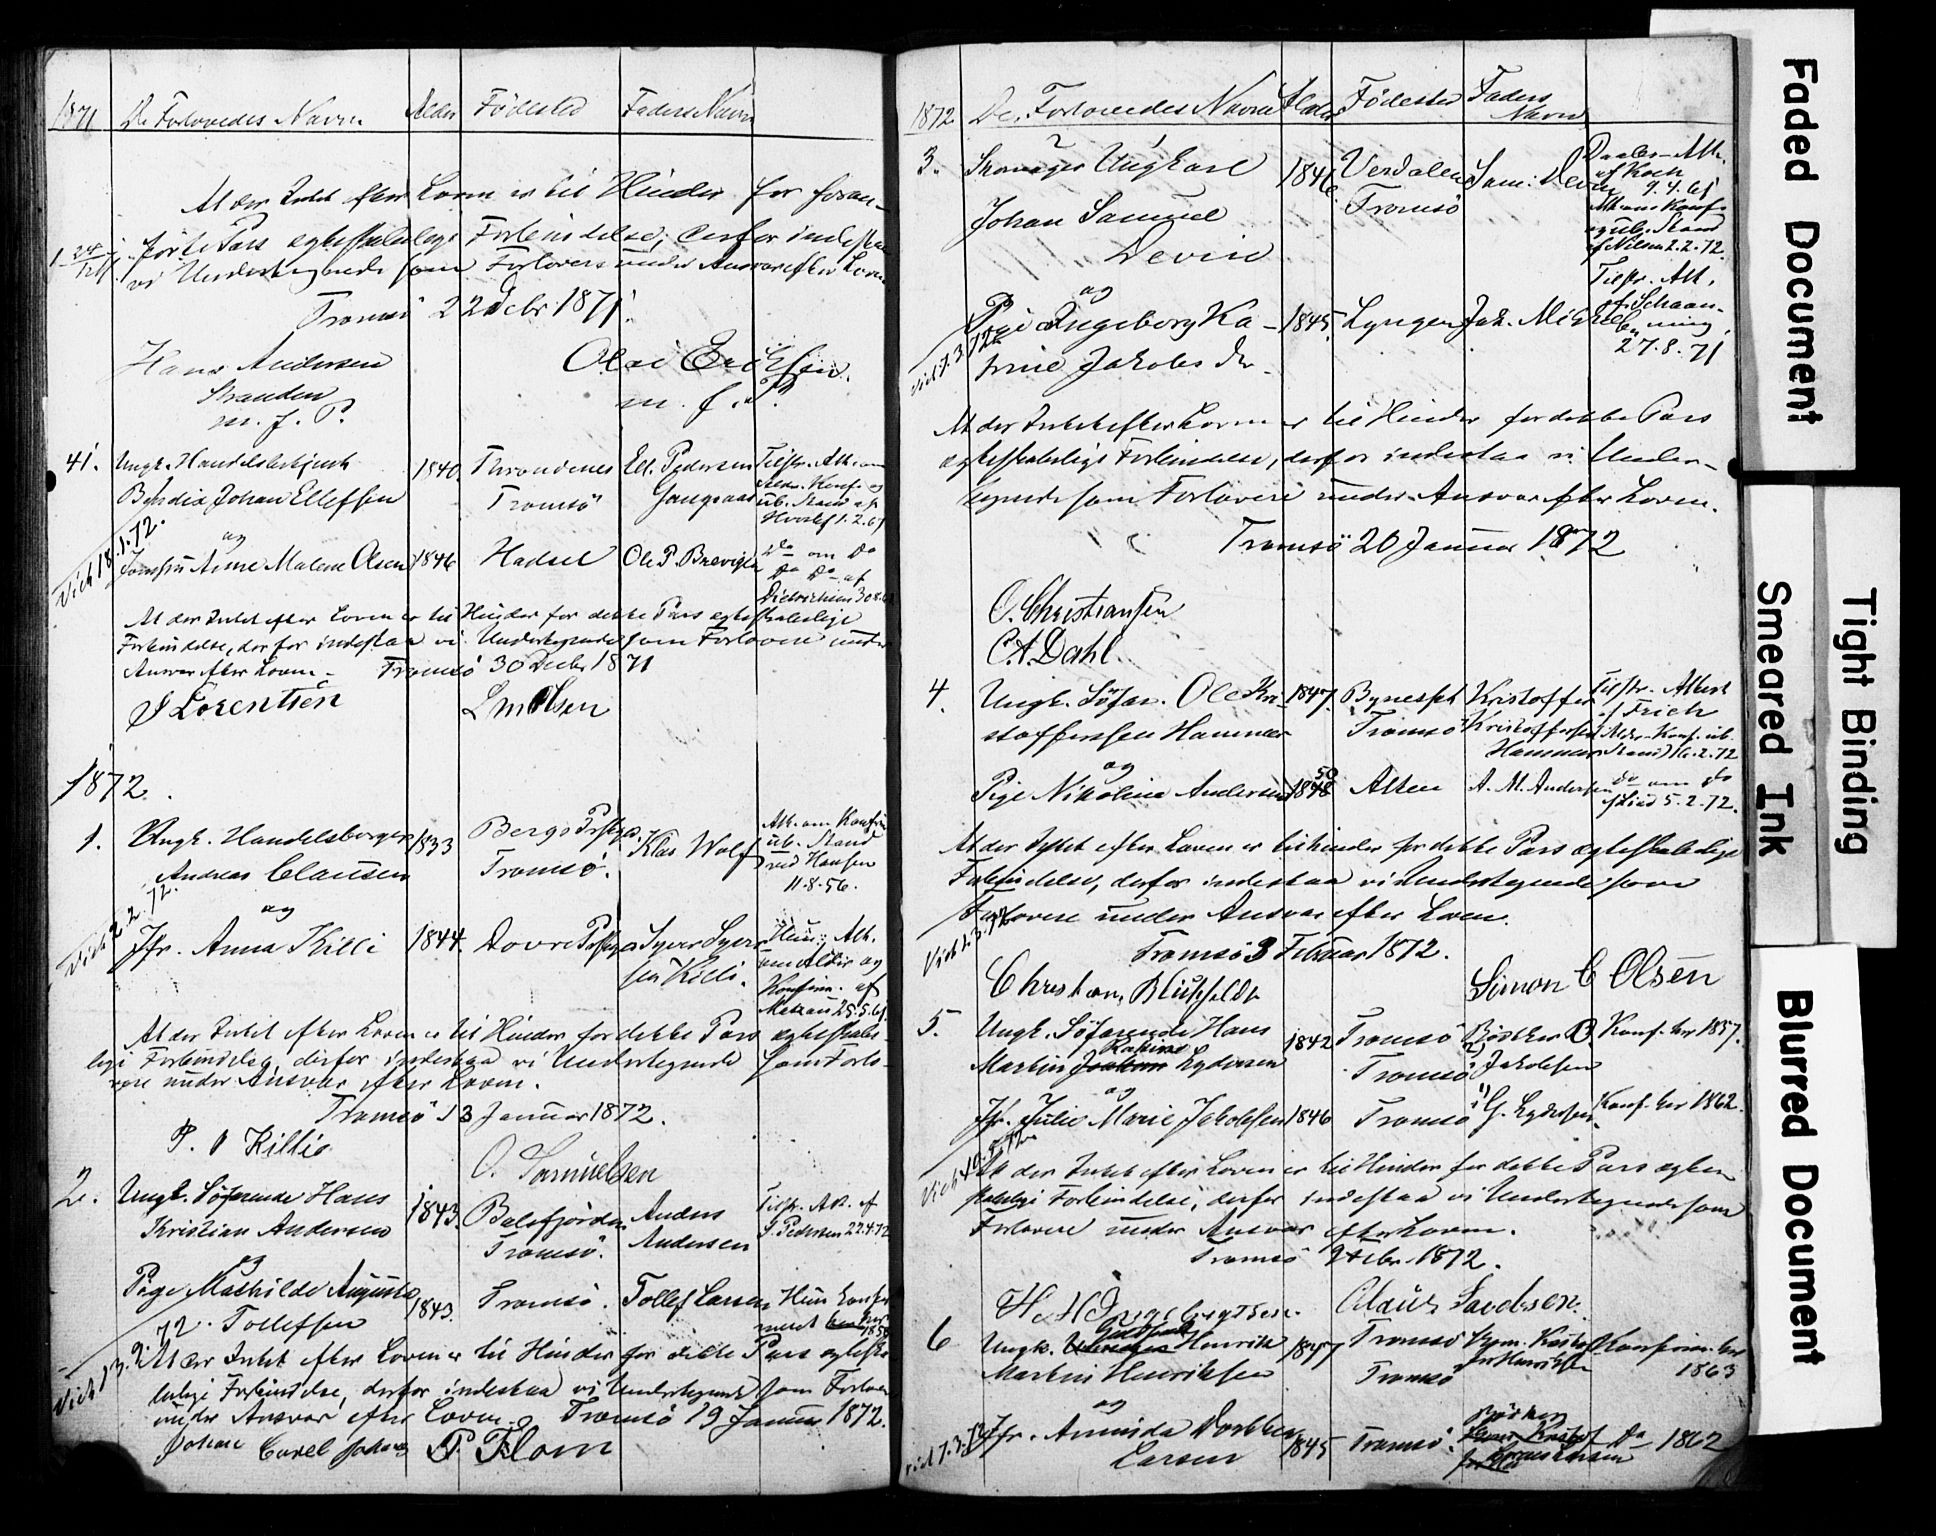 1871 De Forlovedes Navn Alder Fødested Faders Navn
At der Intet efter Loven er til Hinder for foran-
førte Pars egteskabelige Forbindelse, derfor indestaa
vi Undertegnede som Forlovere under Ansvar efter Loven.
Tromsö 22 Decbr 1871.
Hans Andersen
Stranden
m. f. P.
Olai Eriksen.
m. f. P.
41. Ungk. Handelsbetjent
Johan Ellefsen
1840. Throndenes
Tromsö
Ell. Pedersen
Vict 18.1.72.
og
Jomfru Anne Malene Olsen 1846 Hadsel Ole P.
At der Intet efter Loven er til Hinder for dette Pars egteskabelige
Forbindelse, derfor indestaa vi Undertegnede som Forlovere under
Ansvar efter Loven. Tromsö 30 Decbr 1871
J Lorentzen
L M Olsen
1872.
1. Ungk. Handelsborger
Andreas Clausen
1833 Bergs Prstgd.
Tromsö.
Klas Wolf
Att. om Konf.
ub. Stand
ved Hansen
11-8-56.
Vict 2.2.72.
og
Jfr. Anna Killi 1844. Dovre Prstgd Syver Syver-
sen Killi.
Att.
om Alder og
Konfirm. af
25.5.61.
At der Intet efter Loven er til Hinder for dette Pars egteskabe-
lige Forbindelse, derfor indestaa vi Undertegnede som Forlo-
vere under Ansvar efter Loven.
Tromsö 13 Januar 1872.
P. O Killie
O. Samuelsen
2. Ungk. Söfarende Hans
Kristian Andersen
1843. Balsfjorden
Tromsö.
Anders
Andersen
Tilstr. Att. af
Pedersen 22.4.72
og
Pige Mathilde Augusta
Tollefsen
1843. Tromsö. Tollef Larsen Hun konfir-
meret her
1858
Vict 13.2.72.
At der Intet efter Loven er til Hinder for dette Pars egteska-
belige Forbindelse, derfor indestaa vi Undertegnede som Forlovere
under Ansvar efter Loven. Tromsö 19 Januar 1872.
Johan Carel
P Flom
1872 De Forlovedes Navn Alder Fødested Faders
Navn
3. Skomager Ungkarl
Johan Samuel
Devin
1846 Verdalen
Tromsö
Sam: Devin
Att.
af Koch
9.4.61
Att om Konf.
og ub. Stand
af Nilsen 2.2.72.
og
Pige Ingeborg Ka-
trine Jakobs Dr.
1845. Lyngen Jak. Mikkelsen
Tilstr. Att.
af Schaan-
ning
27.8.71
Vict 7.3.72
At der Intet efter Loven er til Hinder for dette Pars
egteskabelige Forbindelse, derfor indestaa vi Under-
tegnede som Forlovere under Ansvar efter Loven.
Tromsö 20 Januar 1872
O. Christiansen
C.A. Dahl.
4. Ungk. Söfar. Ole Kri-
stoffersen Hammer
1847. Bynesset
Tromsö
Kristoffer
Kristoffersen
Hammer
Tilstr. Attest
af Frich
Alder, Konf. ub.
Stand 16.2.72
og
Pige Nikoline Andersen 1848 50 Alten A. M. Andersen
do om do
5.2.72.
At der Intet efter Loven er til hinder for dette Pars egteskabelige
Forbindelse, derfor indestaa vi Undertegnede som
Forlovere under Ansvar efter Loven.
Tromsö 3 Februar 1872.
Christian Blichfeldt
Simon C Olsen
5. Ungk. Söfarende Hans
Martin Lydersen
1842 Tromsö
Tromsö
Bödker
Jakobsen
Konf. her 1857.
og
Jfr. Julie Marie Jakobsen 1846 Tromsö G. Lydersen Konf. her 1862.
At der Intet efter Loven er til Hinder for dette Pars egte-
skabelige Forbindelse, derfor indestaa vi Undertegnede som
Forlovere under Ansvar efter Loven.
Tromsö 9 Febr. 1872.
H. H. Ingebrigtsen.
Claus Jacobsen.
6 Ungk. Henrik
Martin Henriksen
1847 Tromsö
Tromsö
Henriksen
Konfirm. her
1863
og
Jfr. Aminda Dorthea
Larsen
1845 Tromsö.
Larsen
Do 1862
vict 7.3.72
Faded Document
Tight Binding
Smeared Ink
Blurred Document